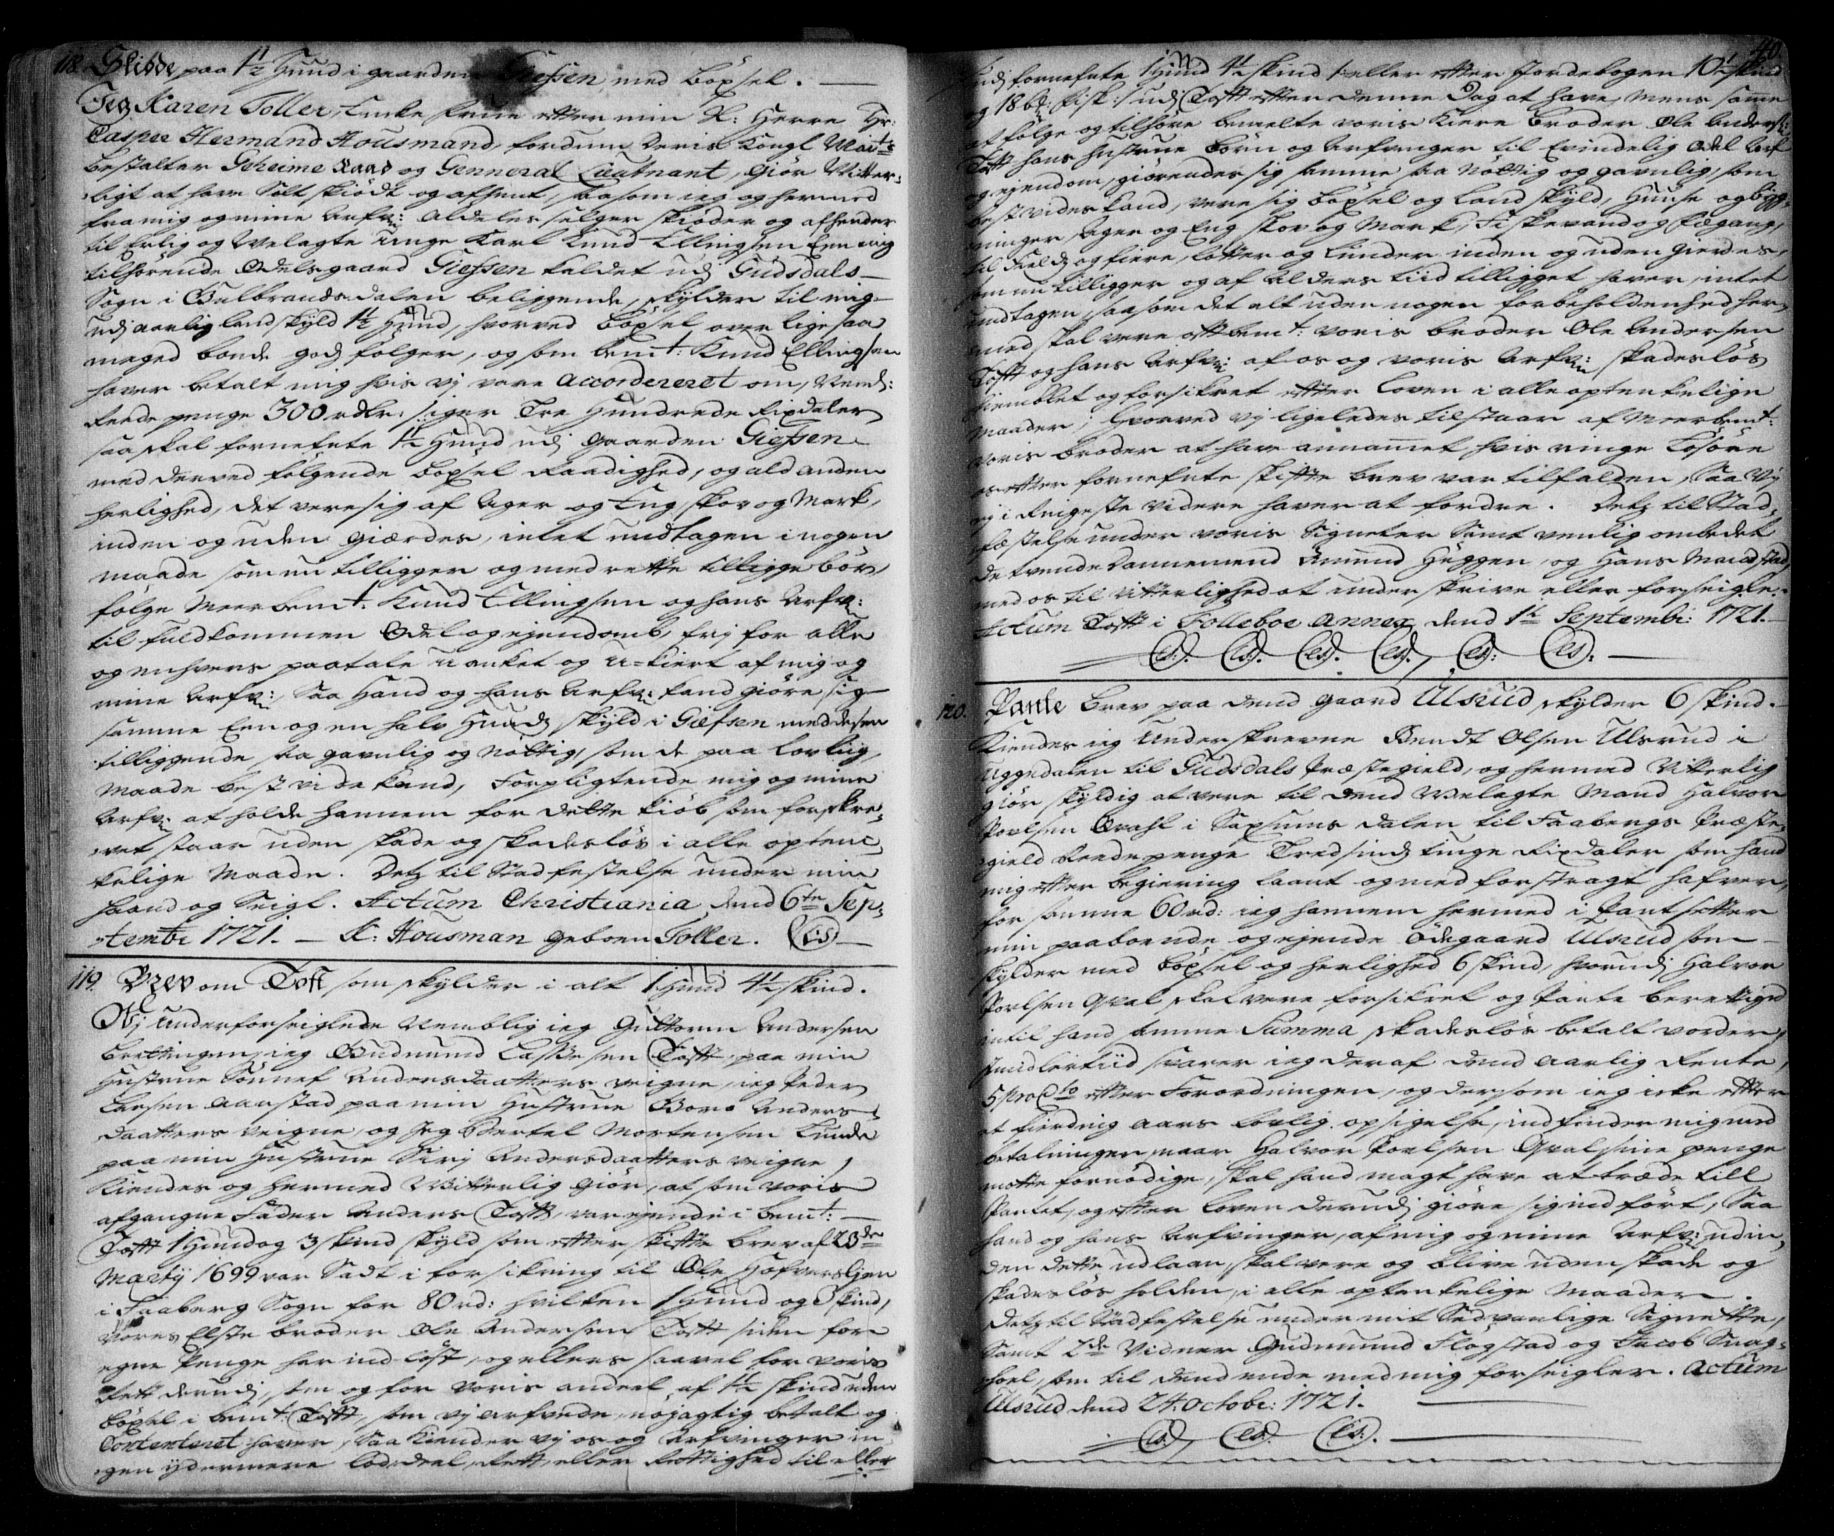 118. Skiøde paa 1½ Hud i gaarden Giefsen, med böxsel.
Jeg Karen Toller, Enke frue efter min S: Herre Hr:
Casper Hermand Housmand, fordum deris Kongl Mait:s
bestalter Geheime Raad og Genneral Lieutnant, giör Vitter-
ligt at have Solt skiödt og afhent, saasom ieg og hermed
fra mig og mine Arfv: aldeles selger skiöder og afhender
til Erlig og Velagte unge Karl Knud Ellingsen Een mig
tilhörende Odelsgaard Giefsen kaldet udj Gudsdals
Sogn i Gulbrandsdalen beliggende, skylder til mig
udj aarlig landskyld 1½ Hud, hvorved böxsel over lige saa
meged bonde gods følger, og som bem:t Knud Ellingsen
haver betalt mig hvis vj vare accorderet om, Nemb:
Reede penge 300 rdlr: siger Tre Hundrede Rixdaler
saa skal fornefnte 1½ Hud udj gaarden Giefsen
med derved følgende böxsel Raadighed, og ald anden
herlighed, det vere sig af Ager og Eng, skov og Mark,
inden og uden giærdes, intet undtagen i nogen
maade som nu tilligger og med rette tilligge bör,
følge Meerbem:t Knud Ellingsen og hans Arfv:
til fuldkommen Odel og ejendomb, frj for alle
og enhvers paatale uanket og u-kiert af mig og
mine Arfv:, Saa Hand og hans Arfv: kand giöre sig
samme Een og en halv Huds skyld i Giefsen med desen
tilliggende saa gavnlig og nöttig, som de paa lovlig
Maade best vide kand, Forpligtende mig og mine
Arfv: at holde hannem for dette kiöb som forskre-
vet staar uden skade og skadeslös i alle optenc-
kelige Maade. Dets til Stadfestelse under min
haand og Seigl. Actum Christiania dend 6te Sep-
tembr 1721. – K: Housman geboren Toller. (LS)
119. Brev om Toft som skylder i alt 1 Hud 4½ skind.
Vj underforseiglede Nemblig ieg Guttorm Andersen
Berttingen, ieg Gudmund Lassesen Toft, paa min
Hustrue Sönnef Andersdaatters veigne, ieg Peder
Larsen Aanstad paa min Hustrue Boro Anders-
daatters Veigne, og jeg Bertel Mortensen Lunde
paa min Hustrue Sirj Andersdaatters veigne,
Kiendes og hermed Vitterlig giör, at som voris
afgangne Fader Anders Toft, var ejende i bem:t:
Toft 1 Hud og 3 skind skyld som efter skifte brev af 23de
Martij 1699 var Sadt i forsikring til Ole Hofversljen
i Faaberg Sogn for 80 rd: hvilken 1 Hud og 3 skind,
vores Elste broder Ole Andersen Toft siden for
egne penge har indlöst, og ellers saavel for voris
Rett derudj, som og for voris andeel af 1½ skind uden
böxsel i bem:t Toft, som vj arfvede, nöjagtig betalt og
Contenteret haver, Saa Kiender vj os og Arfvinger in-
gen ydermere lod, deel, Rett, eller Rettighed til eller
40
udj forneftnte 1 Hud 4½ skind heller efter Jordebogen 10½ skind
og 18 b: fisk: udj Toft efter denne Dag at have, mens samme
at folge og tilhöre bemelte voris kiere broder Ole Anders:
Toft hans hustrue Börn og Arfvinger til Evindelig Odel Arf
og ejendom, giörendes sig samme saa nöttig og gavnlig, som
best vides kand, vere sig böxsel og landskyld, Huuse og bögg-
ninger, Ager og Eng skov og Mark, Fiskevand og Fægang,
til Field og fiere, lötter og lunder inden og uden gierdes,
som nu tilligger og af Alders tiid tilligget haver, intet
undtagen, saasom det alt uden nogen forbeholdenhed her-
med skal vere oftbem:t: voris broder Ole Andersen
Toft og hans Arfv: af os og voris Arfv: skadeslös
hiemblet og forsikret efter loven i alle optenkelige
Maader; Hvorved vj ligeledes tilstaar af Meerbem:t:
voris broder at have annammet hvis ringe Lösöre
os efter forneftnte skifte brev var tilfalden, Saa Vj
ej i Ringeste videre haver at fordre. Dets til Stad-
festelse under voris Signeter Samt venlig ombedet
de tvende Dannemend Amund Huggen og Hans Maurstad,
med os til Vitterlighed at underskrive eller forseigle.
Actum Toft i Folleboe Annex, dend 1te Septembr: 1721.
(LS). (LS). (LS). (LS). (LS). (LS).
120. Pante brev paa dend gaard Ulsrud skylder 6 skind.
Kiendes ieg Underskrevne Bendt Olsen Ulsrud i
Uggedalen til Gudsdals Præstegield, og hermed Vitterlig
giör skyldig at vere til dend Velagte Mand Halvor
Povlsen Qvahl i Saxsums dalen til Faabergs Præste-
gield Reede penge Tredsinds tiuge Rixdaler som hand
mig efter begiering laant og med forstragt hafver,
for samme 60 rd: ieg hannem hermed i Pant setter
min paaboende og ejende Ödegaard Ulsrud som
skylder med böxsel og herlighed 6 skind, hvorudj Halvor
Povlsen Qval skal vere forsikret og Pante berettiget
indtil hand samme Summa skadeslös betalt vorder,
Imidlertiid svarer ieg deraf dend aarlig Rente,
5 proCto efter Forordningen, og dersom ieg icke efter
et fierding aars lovlig opsigelse, indfinder mig med
betalningen, naar Halvor Povlsen Qval sine penge
motte fornödige, skal hand magt have at træde till
Pantet, og efter loven derudj giöre sig indfört, Saa
hand og hans Arfvinger, af mig og mine Arfv: udin-
den dette udlaan, skal vere og blive uden skade og
skadeslös holden, i alle optenkelige Maader.
Dets til Stadfestelse under mit Sedvanlige Signette,
Samt 2de Vidner Gudmund Flogstad og Jacob Snog-
hoel, som til dend ende med mig forseigler. Actum
Ulsrud dend 24. Octobr: 1721.
(LS). (LS). (LS).